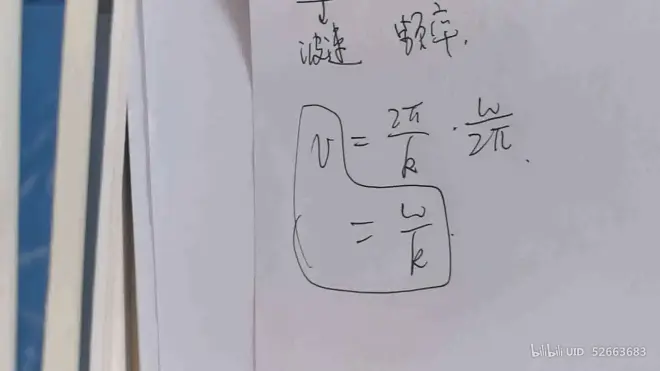 波速 频率.
v = \frac{2π}{k} · \frac{ω}{2π}.
= \frac{ω}{k}.
bilibili UID 52663683